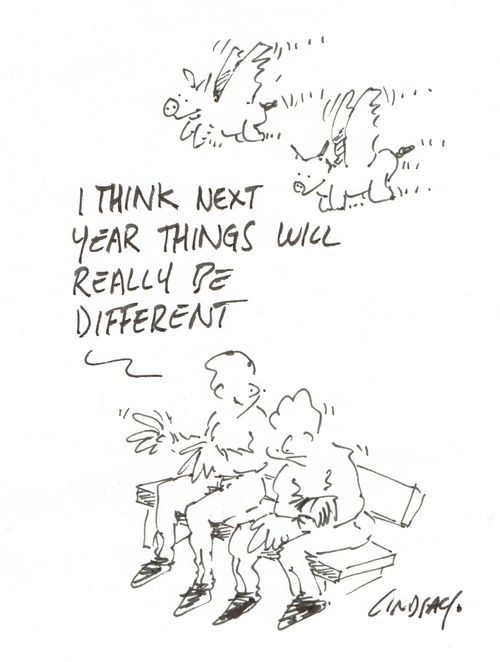 I THINK NEXT
YEAR THINGS WILL
REALLY BE
DIFFERENT
LINDSAY.